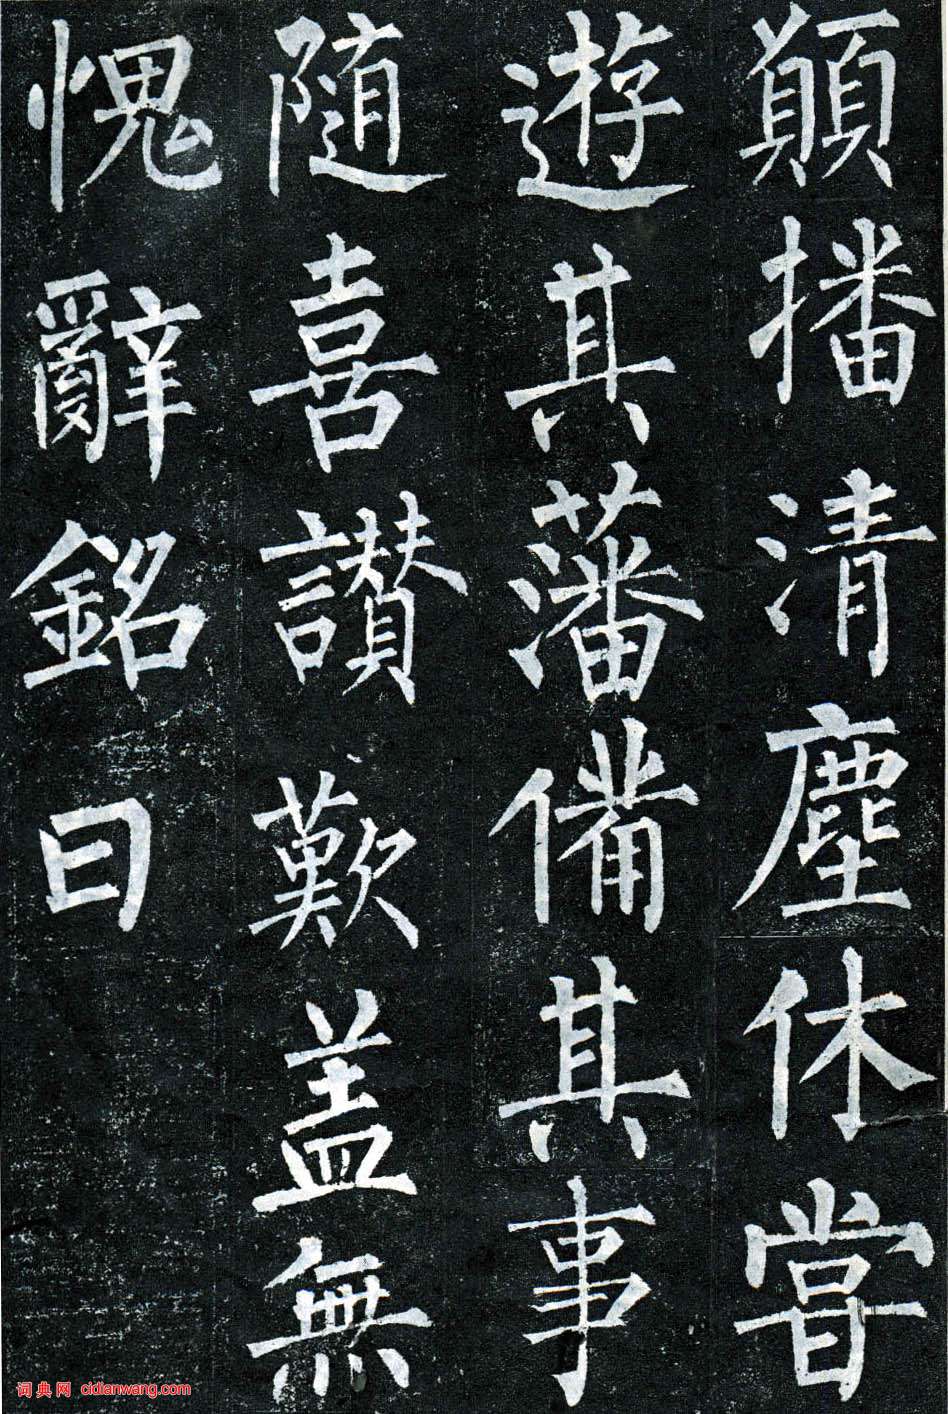 願播清塵休嘗
遊其藩備其事
隨喜讃歎盖無
愧辭銘曰
词典网 cidianwang.com